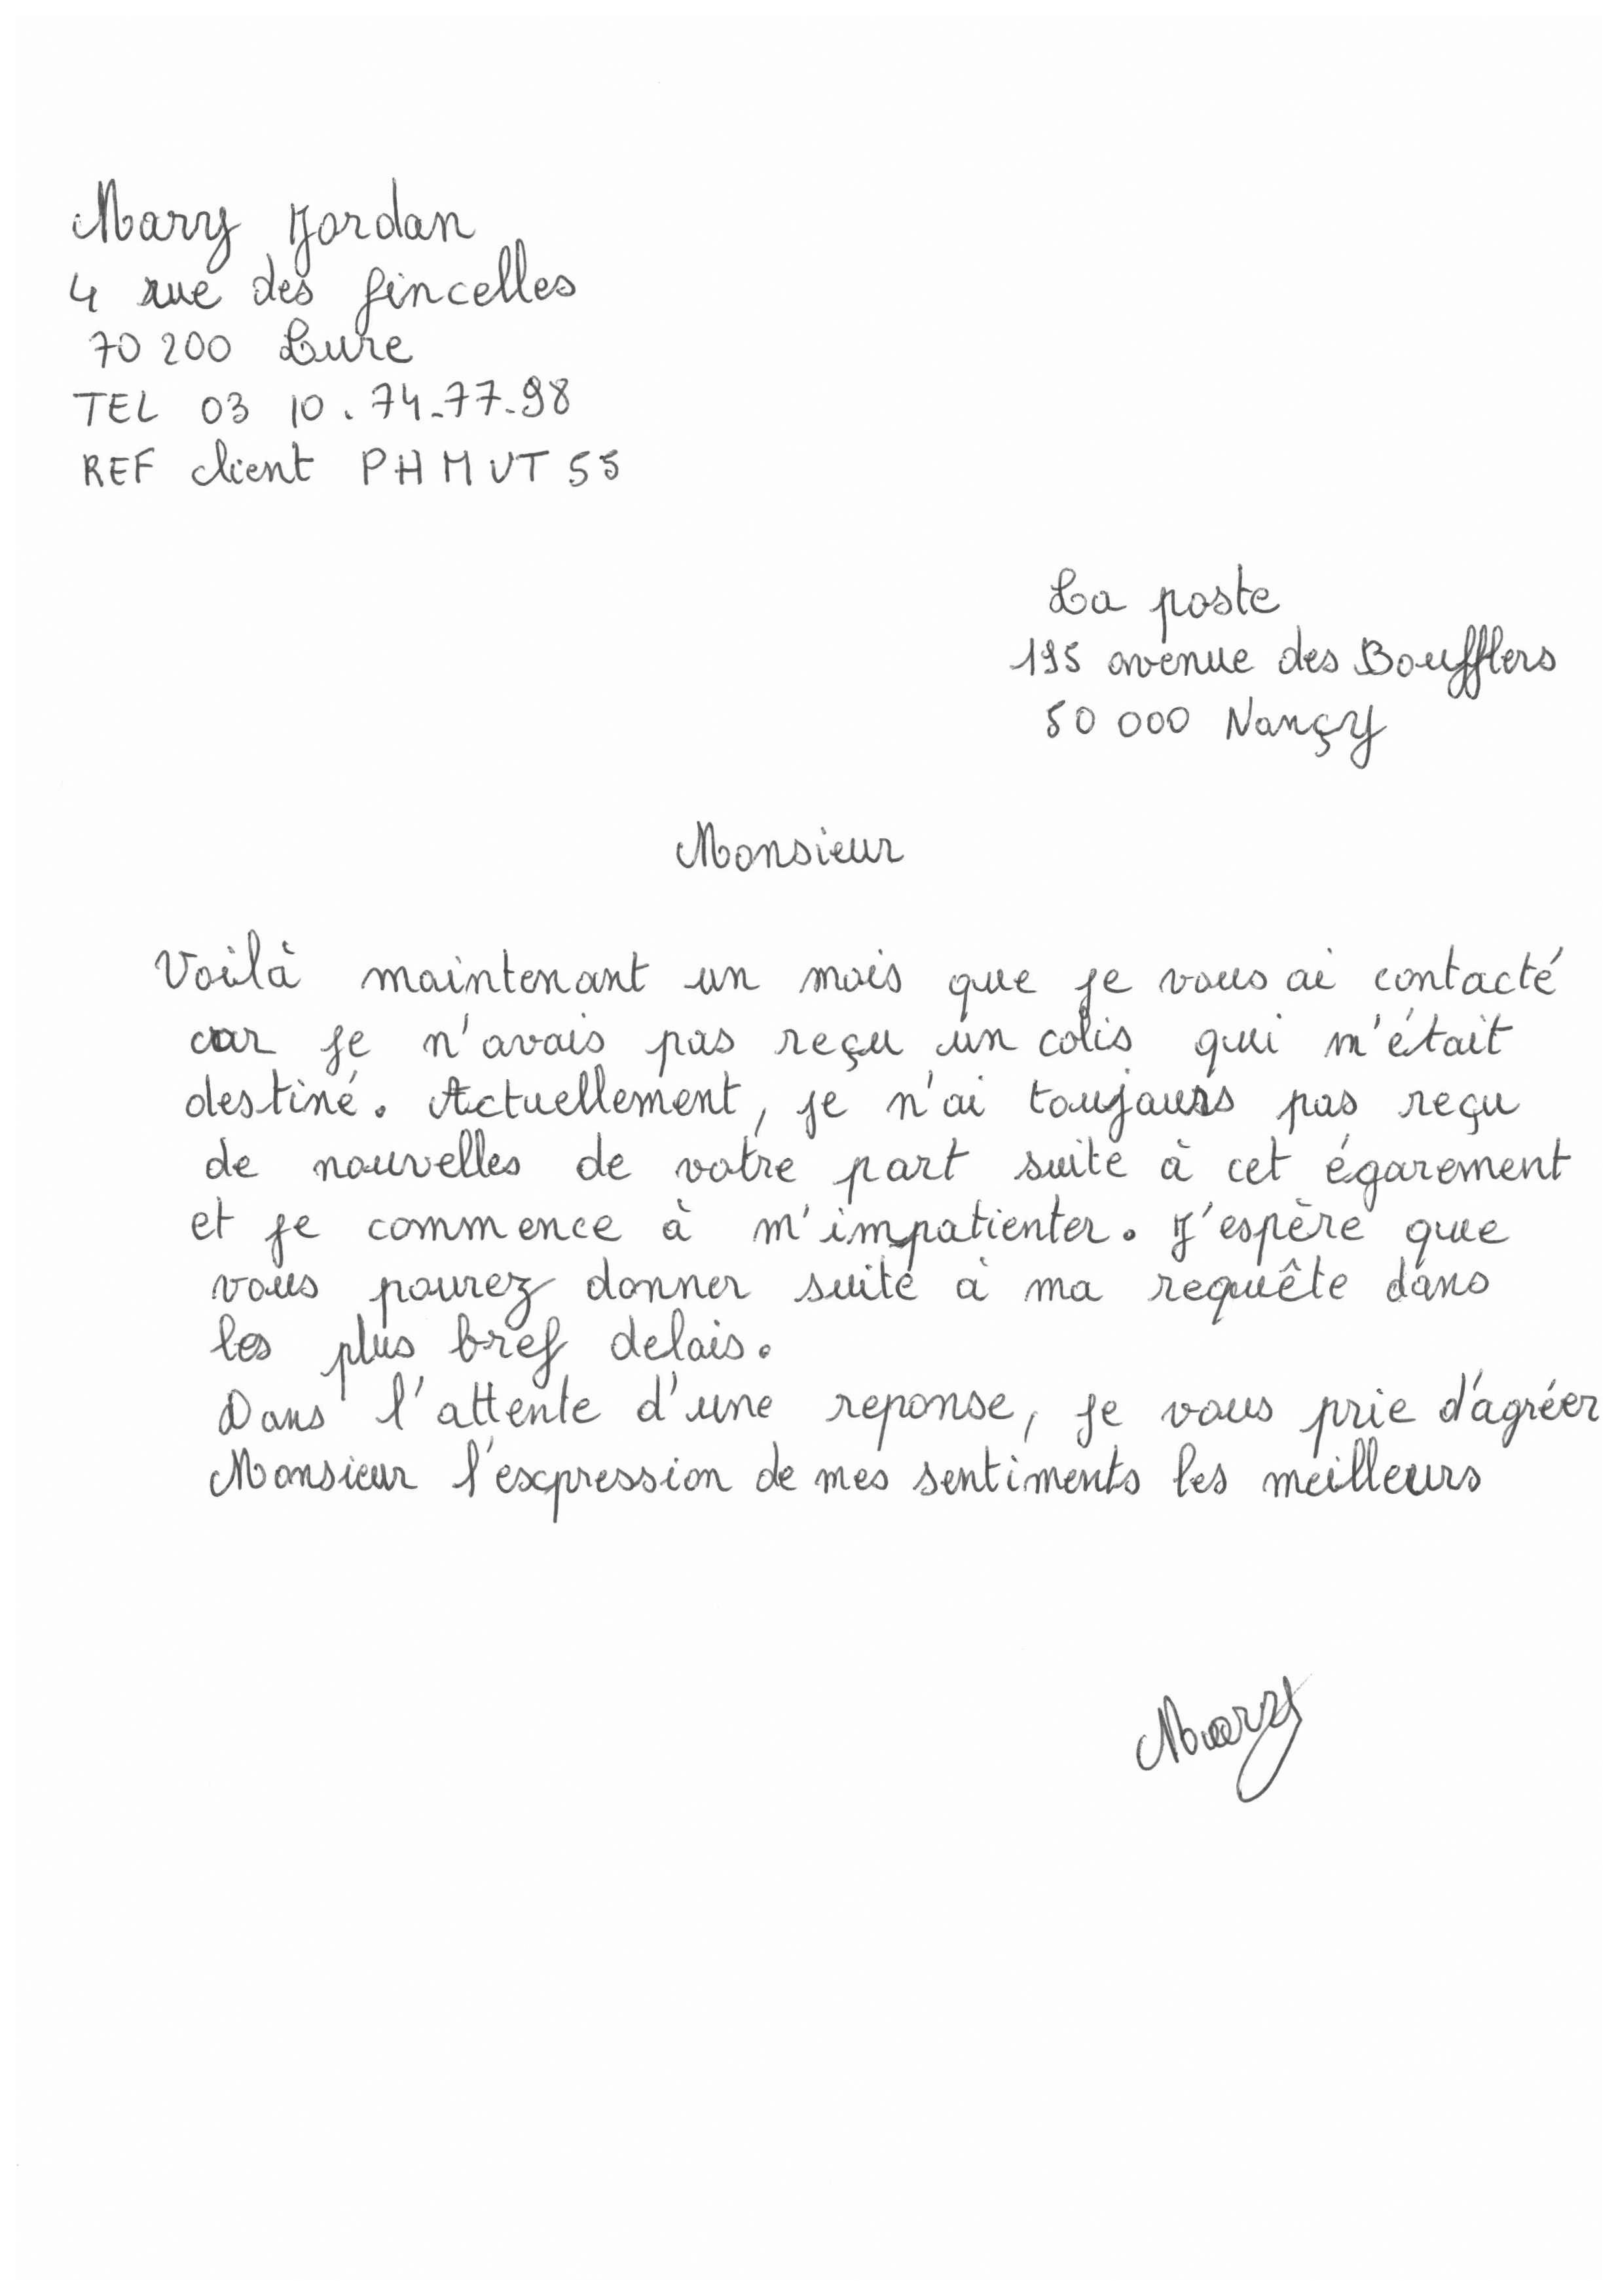 Mary Jordan
4 rue des fincelles
70 200 Lure
TEL 03 10.74-77-98
REF client PHMUT55
La poste
195 avenue des Boufflers
50 000 Nançy
Monsieur
Voilà maintenant un mois que je vous ai contacté
car je n'avais pas reçu un colis qui m'était
destiné. Actuellement, je n'ai toujours pas reçu
de nouvelles de votre part suite à cet égarement
et je commence à m'impatienter. J'espère que
vous pourez donner suite à ma requête dans
les plus bref delais.
Dans l'attente d'une reponse, je vous prie d'agréer
Monsieur l'expression de mes sentiments les meilleurs
Mary